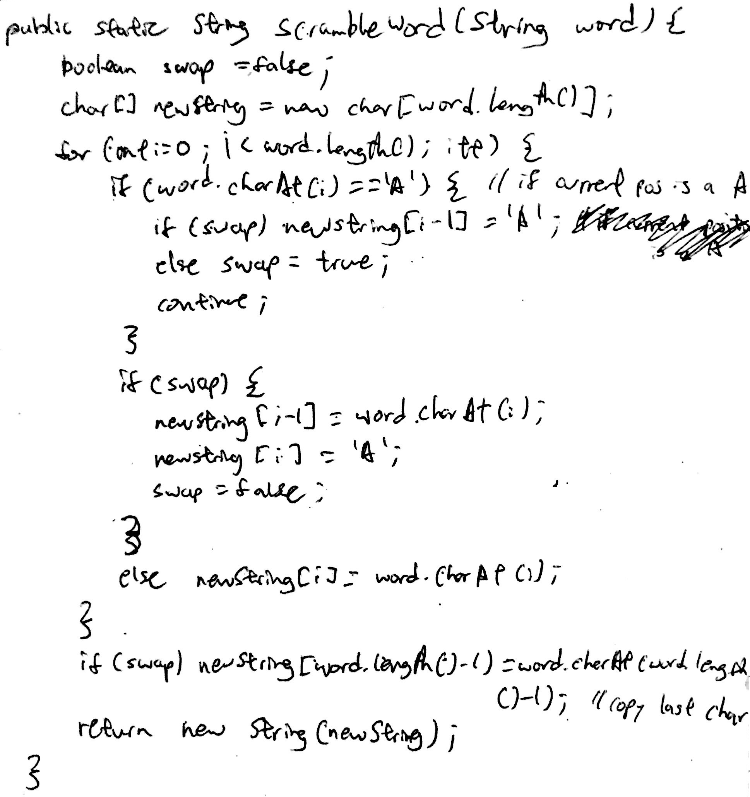 public static String scrambleWord(String word) {
boolean swap = false;
char[] newString = new char[word.length()];
for (int i=0; i < word.length(); i++) {
if (word.charAt(i) == 'A') { // if current pos is a A
if (swap) newstring[i-1] = 'A';
else swap = true;
continue;
}
if (swap) {
newstring[i-1] = word.charAt(i);
newstring[i] = 'A';
swap = false;
}
else newString[i] = word.charAt(i);
}
if (swap) newString[word.length()-1) = word.charAt(word.length
()-1); // copy last char
return new String(newString);
}